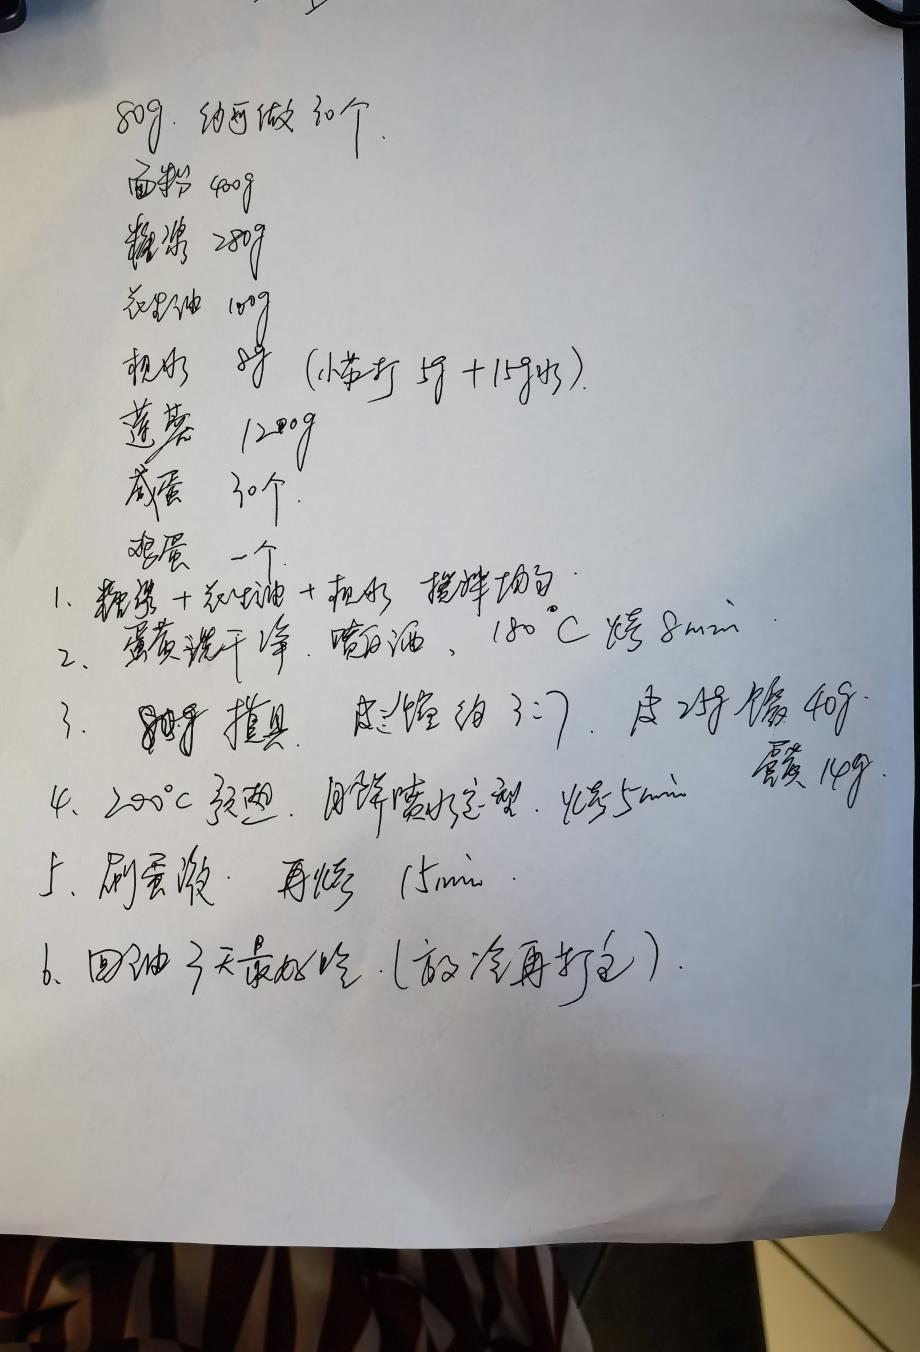 80g. 约可做30个.
面粉 400g
糖浆 280g
花生油 100g
枧水 8g (小苏打 5g + 15g水).
莲蓉 1200g
咸蛋 30个.
鸡蛋 一个.
1、糖浆 + 花生油 + 枧水 搅拌均匀.
2、蛋黄洗干净. 喷白酒、180°C 烤 8min.
3. 模具. 皮:馅约 3:7. 皮25g 馅 40g.
蛋黄 14g.
4、200°C 预热. 月饼喷水定型. 烤5min
5、刷蛋液. 再烤 15min.
6、回油3天最好吃. (放冷再打包).